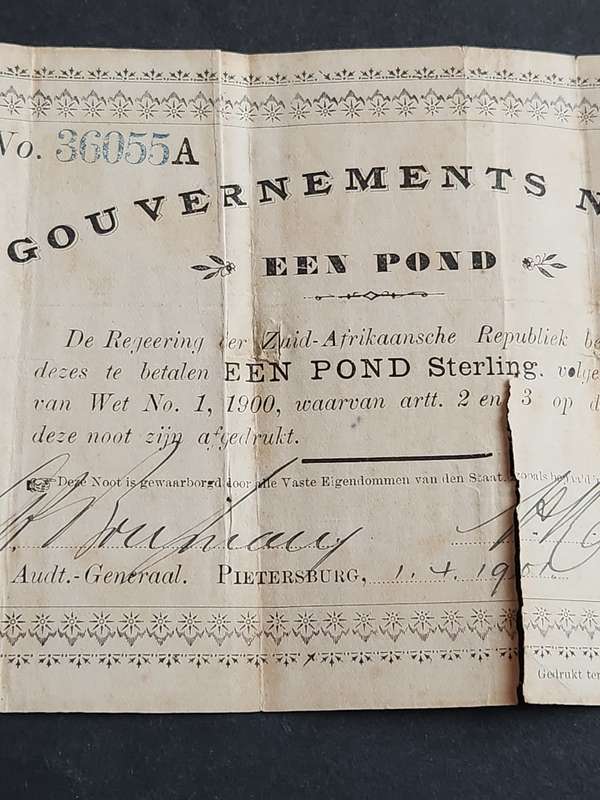 No. 36055A
GOUVERNEMENTS N
EEN POND
De Regeering der Zuid-Afrikaansche Republiek be
dezes te betalen EEN POND Sterling, volge
van Wet No. 1, 1900, waarvan artt. 2 en 3 op d
deze noot zijn afgedrukt.
Deze Noot is gewaarborgd door alle Vaste Eigendommen van den Staat, zooals bepaald
Audt.-Generaal. PIETERSBURG, 1. 4. 1901.
Gedrukt ter